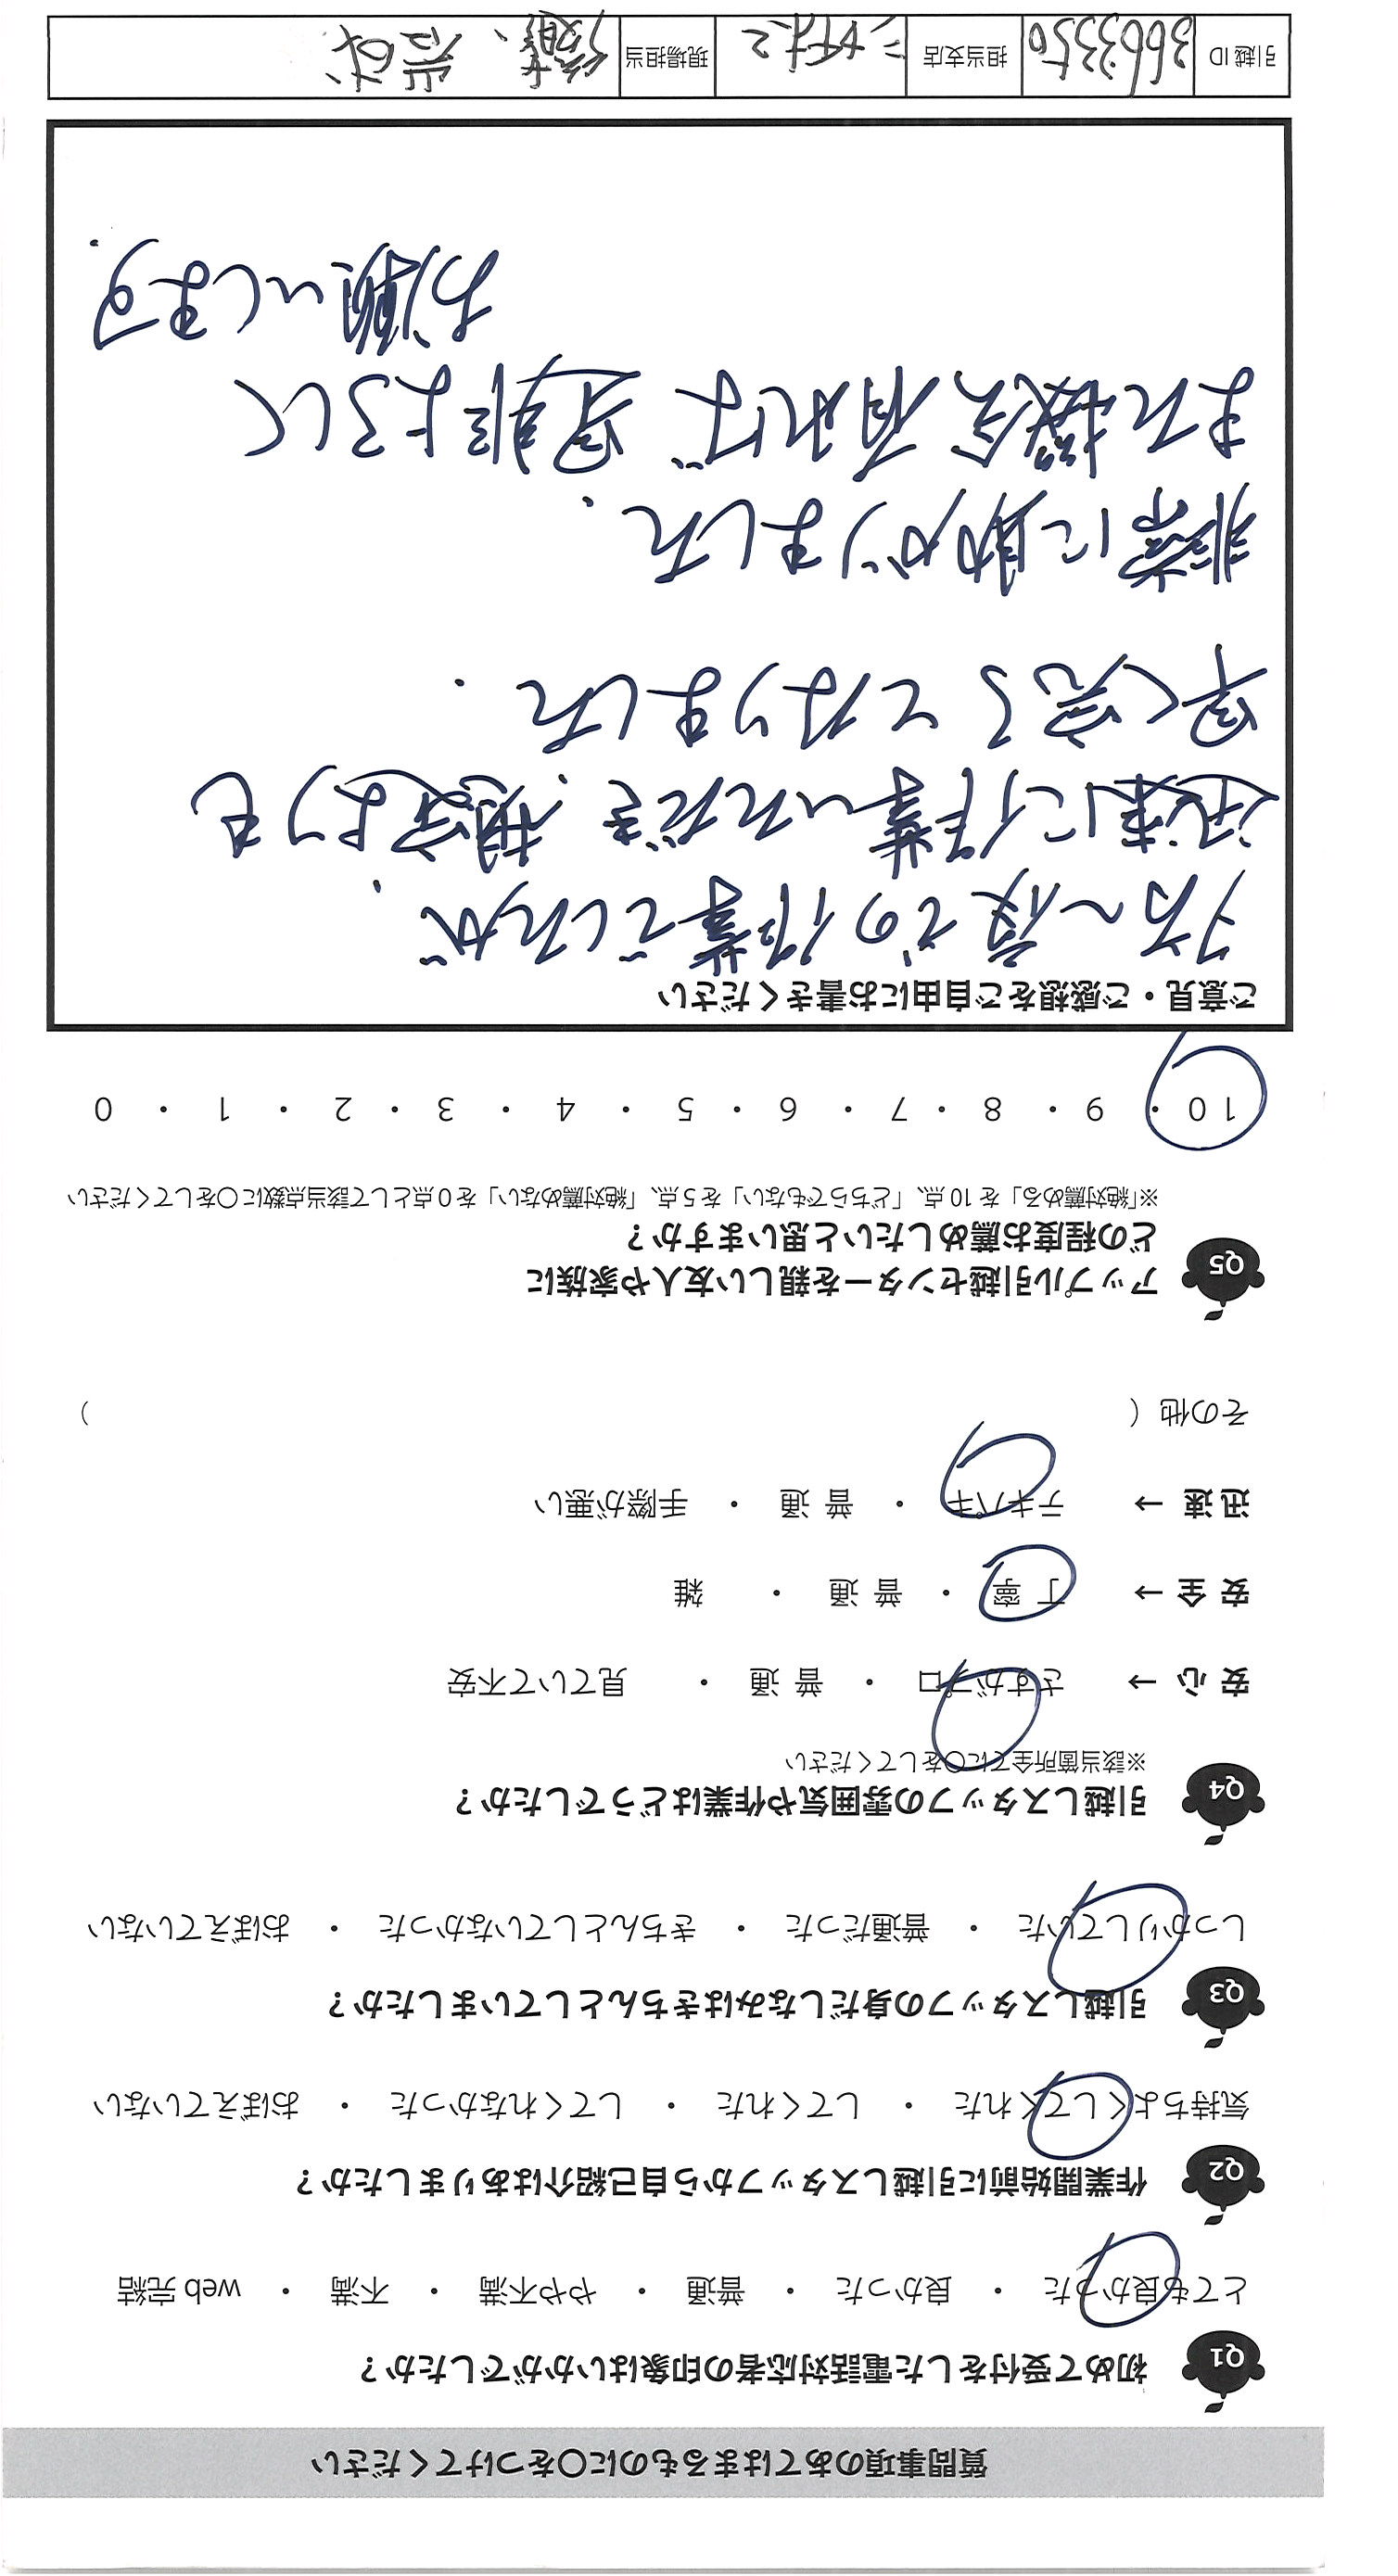 質問事項のあてはまるものに〇をつけてください
Q1 初めて受付をした電話対応者の印象はいかがでしたか？
とても良かった ・ 良かった ・ 普通 ・ やや不満 ・ 不満 ・ web 完結
Q2 作業開始前に引越しスタッフから自己紹介はありましたか？
気持ちよくしてくれた ・ してくれた ・ してくれなかった ・ おぼえていない
Q3 引越しスタッフの身だしなみはきちんとしていましたか？
しっかりしていた ・ 普通だった ・ きちんとしていなかった ・ おぼえていない
Q4 引越しスタッフの雰囲気や作業はどうでしたか？
※該当箇所全てに〇をしてください
安 心 → さすがプロ ・ 普 通 ・ 見ていて不安
安 全 → 丁 寧 ・ 普 通 ・ 雑
迅 速 → テキパキ ・ 普 通 ・ 手際が悪い
その他（ ）
Q5 アップル引越センターを親しい友人や家族に
どの程度お薦めしたいと思いますか？
※「絶対薦める」を 10 点、「どちらでもない」を 5 点、「絶対薦めない」を 0 点として該当点数に〇をしてください
10 ・ 9 ・ 8 ・ 7 ・ 6 ・ 5 ・ 4 ・ 3 ・ 2 ・ 1 ・ 0
ご意見・ご感想をご自由にお書きください
夕方〜夜での作業でしたが、
迅速に作業いただき、想定よりも
早く完了となりました.
非常に助かりました.
また機会有れば是非よろしく
お願いします.
引越 ID 3663350 担当支店 現場担当